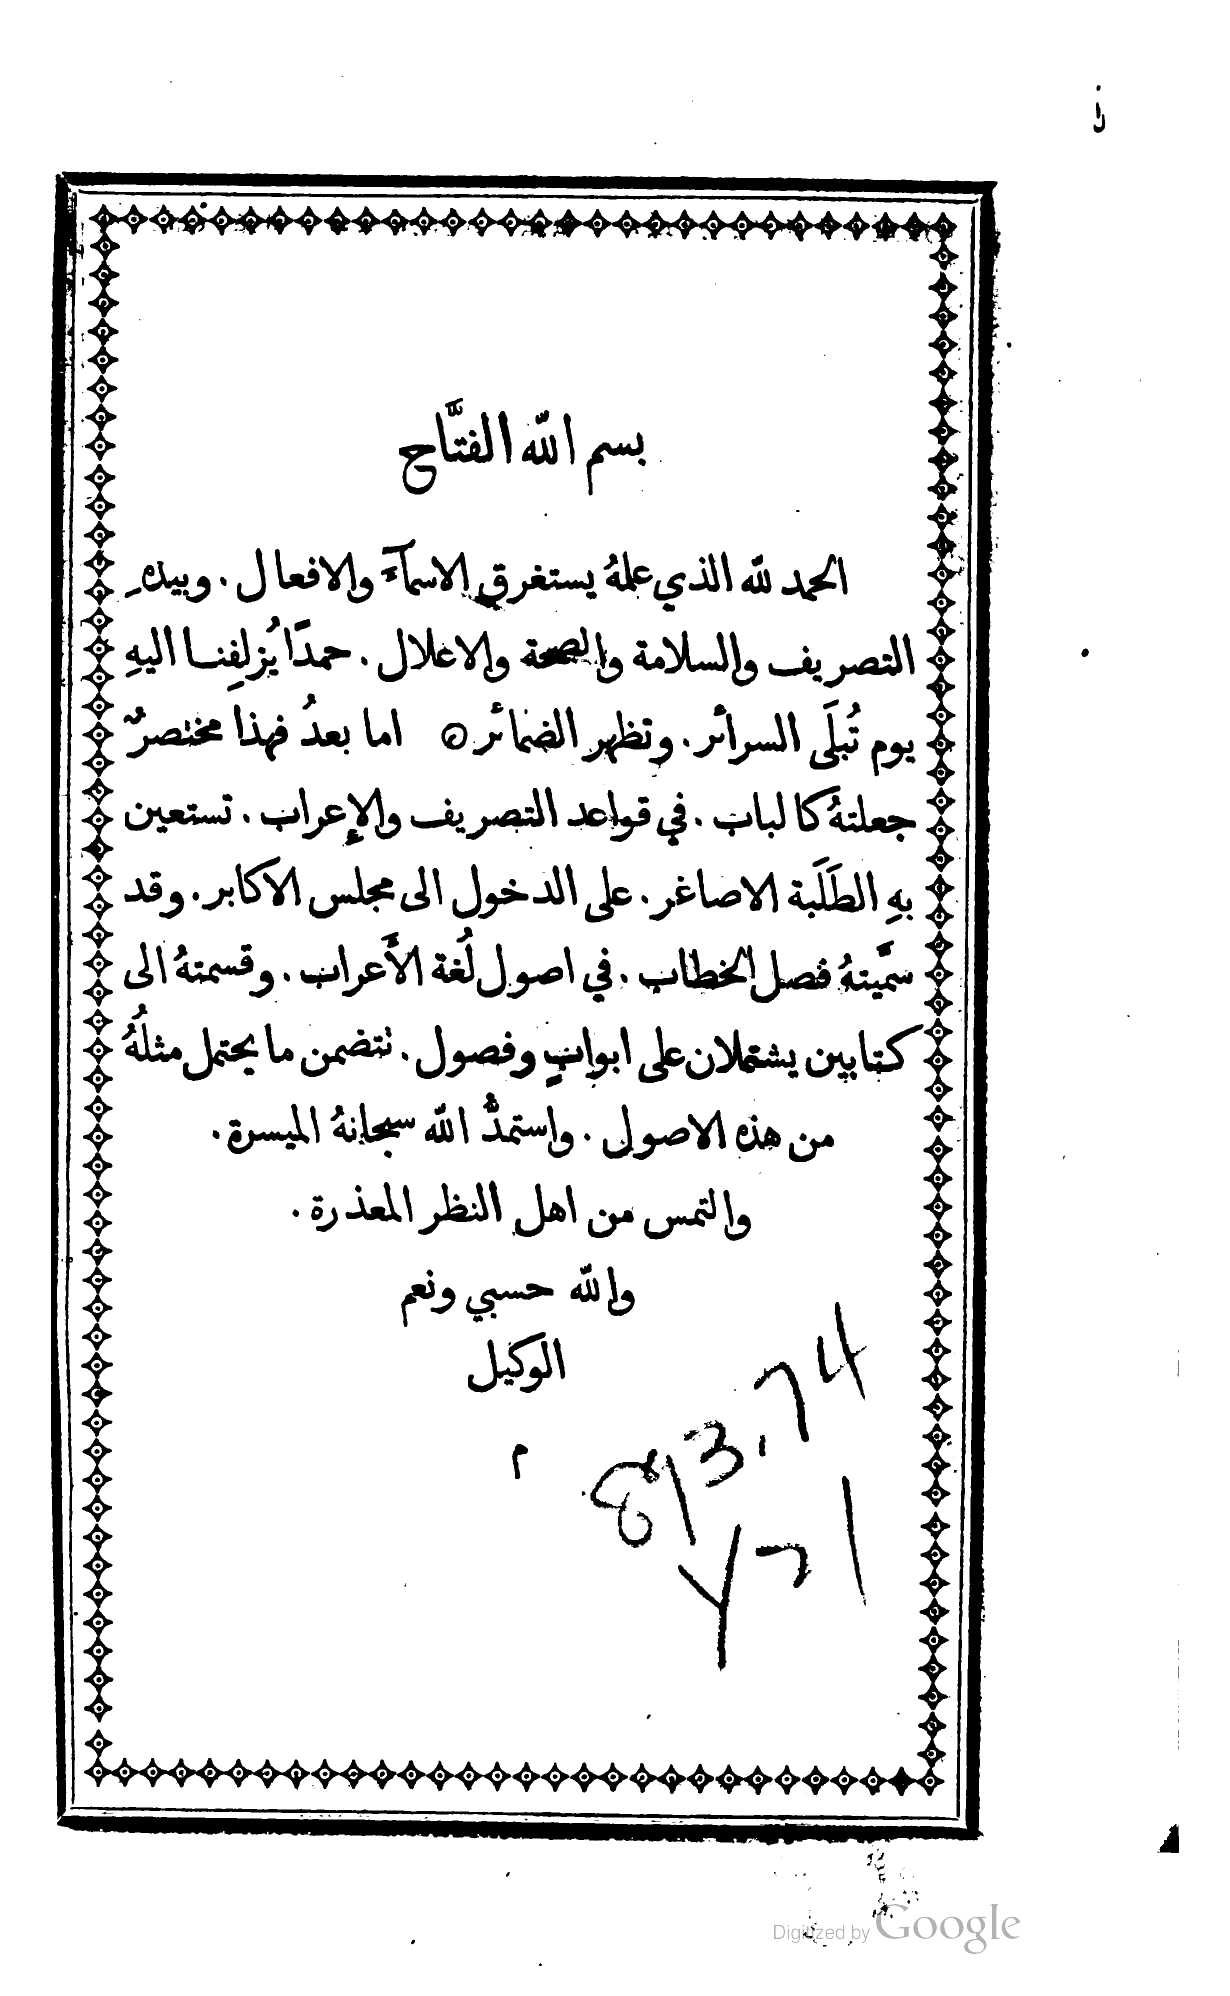 بسم الله الفتَّاح
الحمد لله الذي علمهُ يستغرق الاسمآءَ والافعال. وبيدهِ
التصريف والسلامة والصحة والاعلال. حمدًا يُزلِفنا اليهِ
يوم تُبلَى السرائر. وتظهر الضمائر ۞ اما بعدُ فهذا مختصرٌ
جعلتهُ كالباب. في قواعد التصريف والإعراب. تستعين
بهِ الطَلَبة الاصاغر. على الدخول الى مجلس الاكابر. وقد
سمَّيتهُ فصل الخطاب. في اصول لُغة الأَعراب. وقسمتهُ الى
كتابين يشتملان على ابوابٍ وفصول. تتضمن ما يحتمل مثلُهُ
من هذه الاصول. واستمدُّ الله سبحانهُ الميسرة.
والتمس من اهل النظر المعذرة.
والله حسبي ونعم
الوكيل
م
893.74
Y21
Digitized by Google